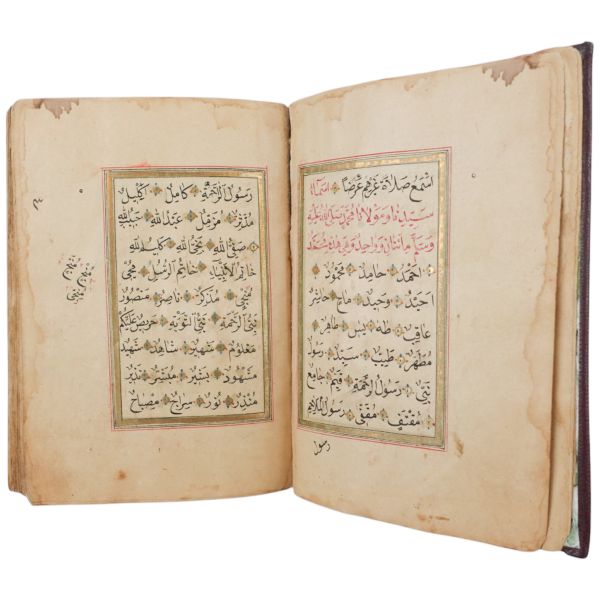 اسمع صلاة غيرهم عرضا اسماء
سيدنا ومولانا محمد صلى الله عليه
وسلم مائتان وواحد وهي هذه محمد
احمد حامد محمود
احيد وحيد ماح حاشر
عاقب طه يس طاهر
مطهر طيب سيد رسول
نبي رسول الرحمة قيم جامع
مقتف مقفى رسول الملاحم
رسول
رسول الراحة كامل اكليل
مدثر مزمل عبد الله حبيب الله
صفي الله نجي الله كليم الله
خاتم الانبياء خاتم الرسل محيي
منجي مذكر ناصر منصور
نبي الرحمة نبي التوبة حريص عليكم
معلوم شهير شاهد شهيد
مشهود بشير مبشر نذير
منذر نور سراج مصباح